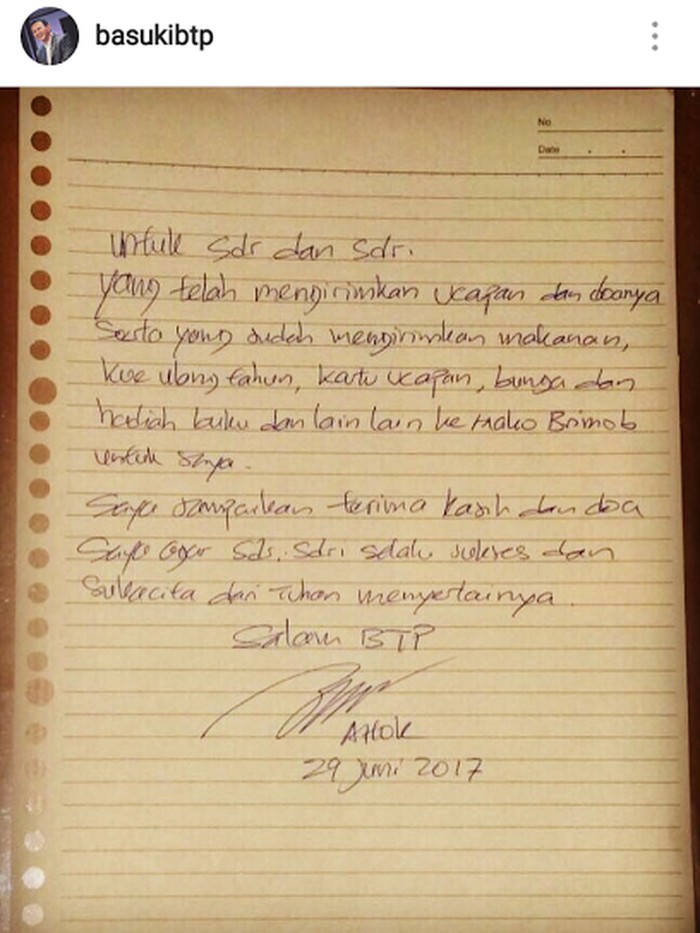 basukibtp
No
Date . .
Untuk Sdr dan Sdr.
yang telah mengirimkan ucapan dan doanya
Serta yang sudah mengirimkan makanan,
kue ulang tahun, kartu ucapan, bunga dan
hadiah buku dan lain lain ke Mako Brimob
untuk saya.
Saya sampaikan terima kasih dan doa
Saya agar Sdr. Sdri selalu sukses dan
Sukacita dari Tuhan menyertainya.
Salam BTP
AHOK
29 Juni 2017